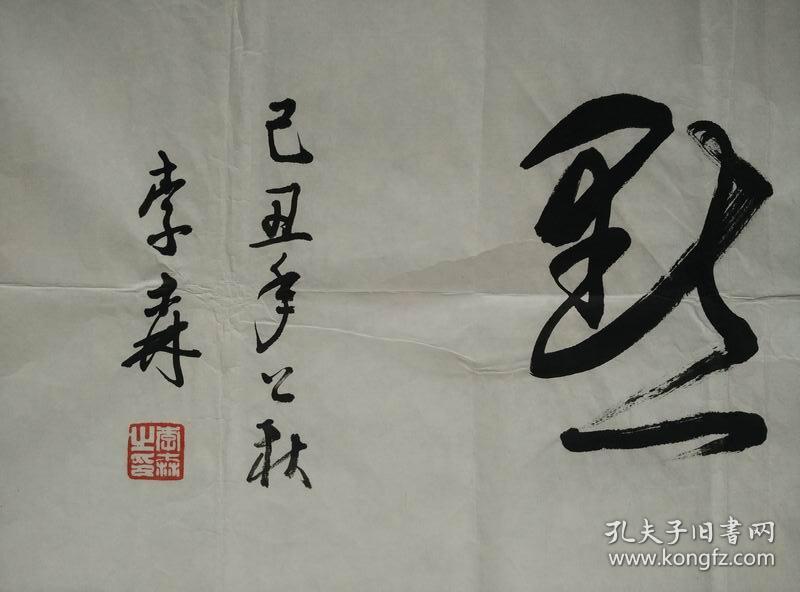 默
己丑年之秋
李森
李森之印
孔夫子旧書网
www.kongfz.com